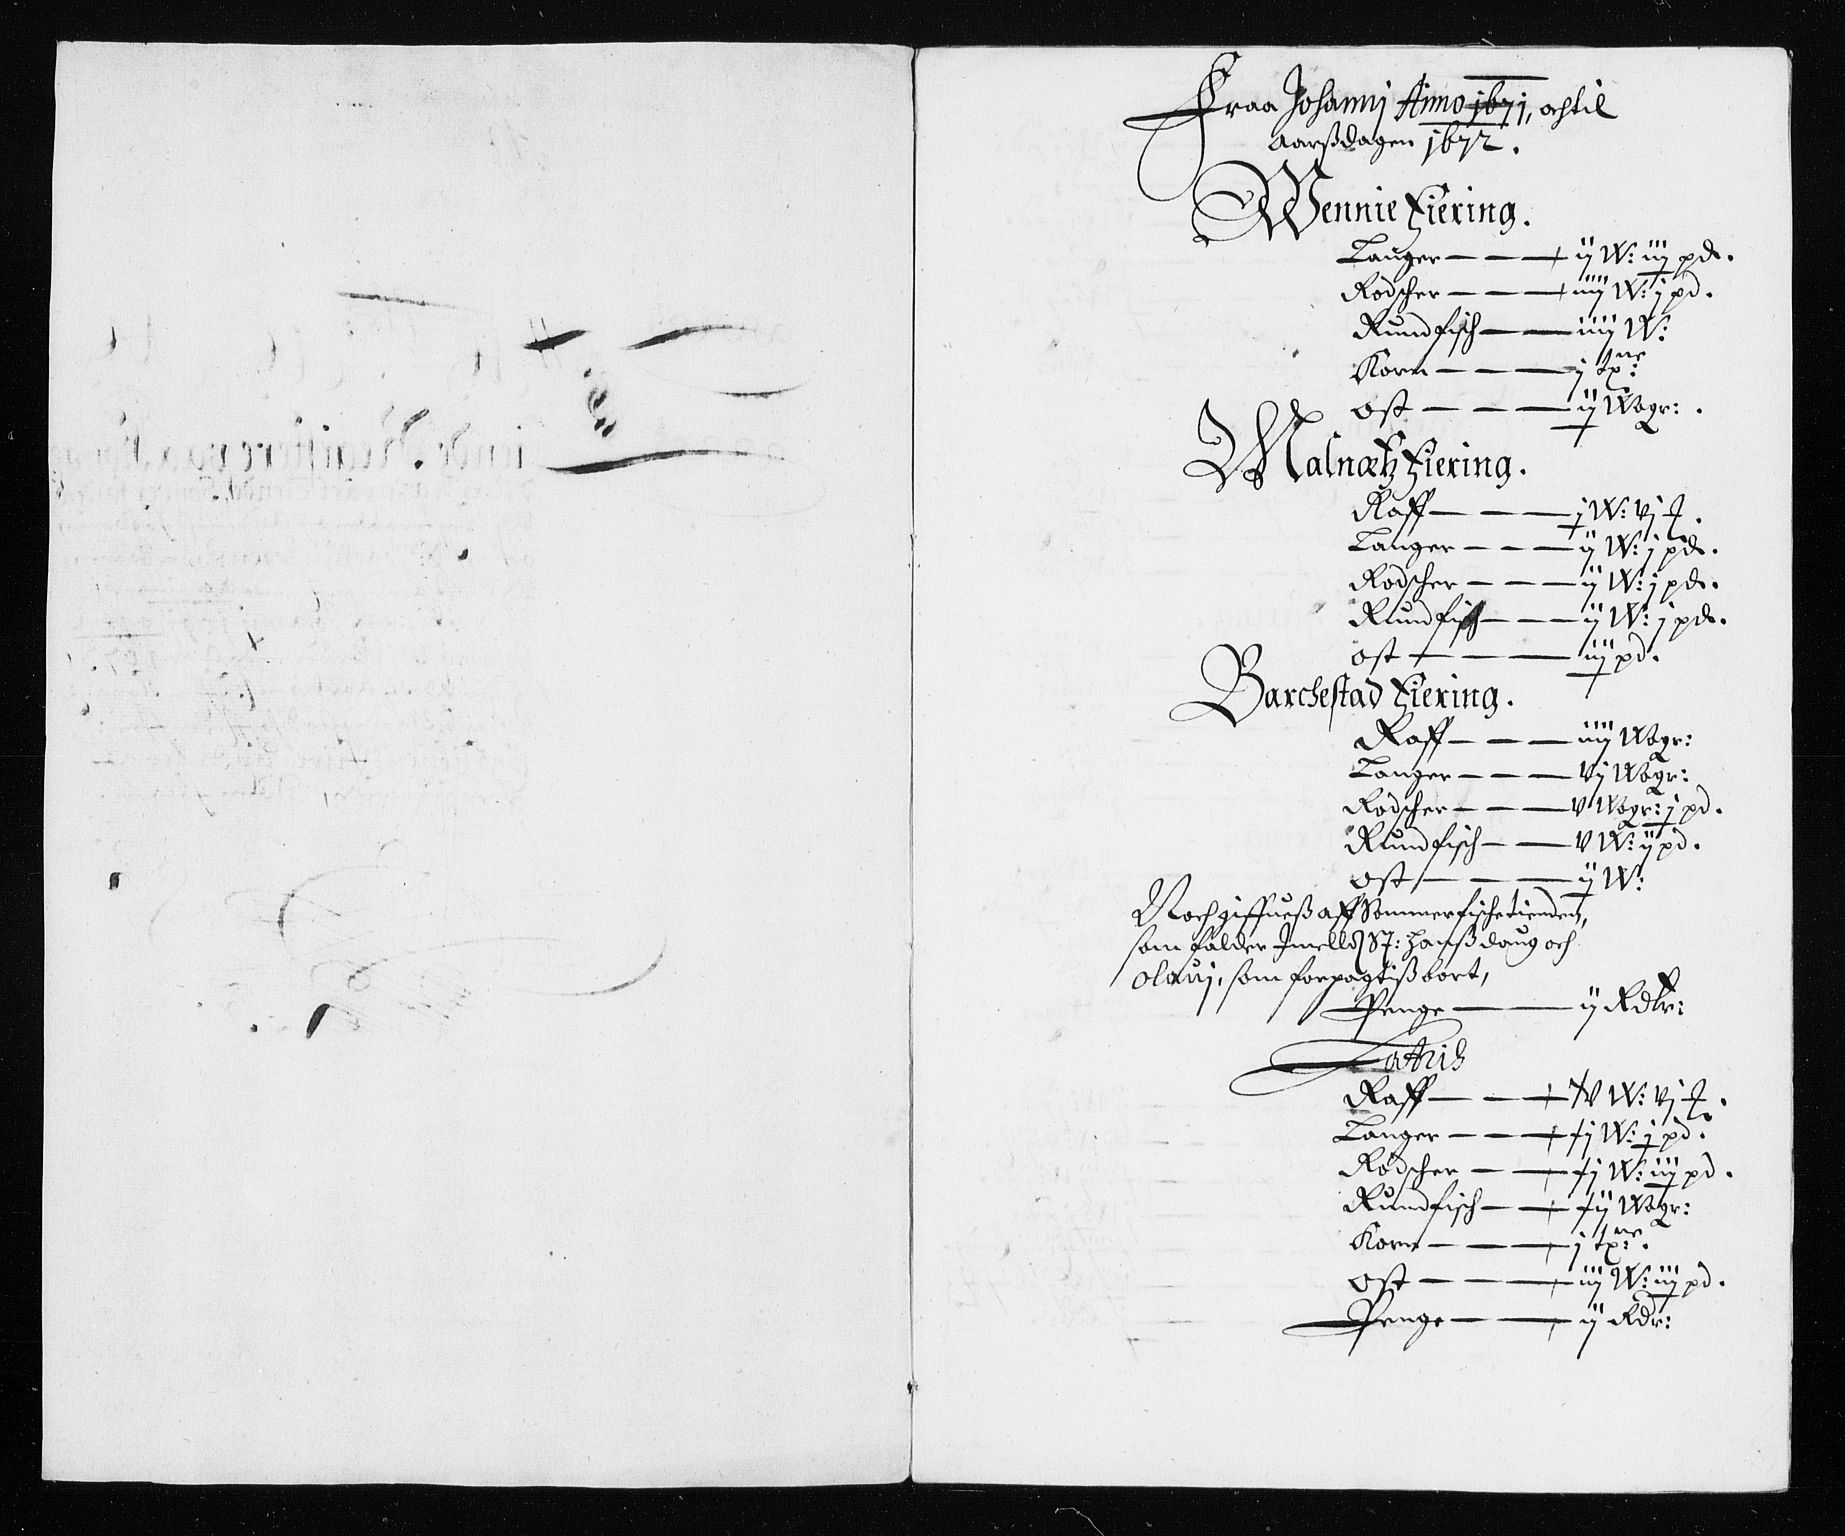 Fraa Johannj Anno 1671, och til
aarsdagen 1672.
Wennie Fiering.
Langer — — — ij W: iij pd.
Rodscher — — — iiij W: j pd.
Rundfisch — — iiij W:
Korn — — — j tne:
ost — — — ij Wogr:.
Malnætz Fiering.
Raff — — — j W: vj
Langer — — — ij W: j pd.
Rodscher — — — ij W: j pd.
Rundfisch — — — ij W: j pd.
ost — — — iij pd.
Barchestad Fiering.
Raff — — — iiij Wogr:
Langer — — — vj Wogr:
Rodscher — — — v Wogr: j pd.
Rundfisch — — v W: ij pd.
ost — — — ij W:
Noch giffuess aff Sommerfischetienden,
som falder Imellom St: Hanssdaug och
Olauj, som forpagtiss bort,
Penge — — ij Rdlr:
Lateris
Raff — — — v W: vj
Langer — — — xj W: j pd.
Rodscher — — xj W: iij pd.
Rundfisch — — xij Wogr:
Korn — — — j tne:.
ost — — — iij W: iij pd.
Penge — — ij Rdr: